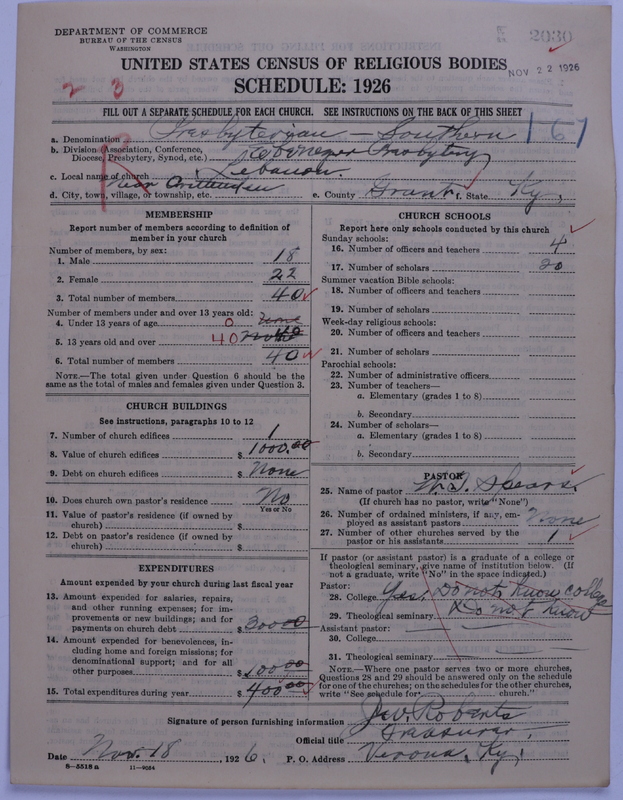 DEPARTMENT OF COMMERCE
BUREAU OF THE CENSUS
WASHINGTON
2030
UNITED STATES CENSUS OF RELIGIOUS BODIES
NOV 22 1926
SCHEDULE: 1926
2 3
FILL OUT A SEPARATE SCHEDULE FOR EACH CHURCH. SEE INSTRUCTIONS ON THE BACK OF THIS SHEET
167
R
a. Denomination Presbyterian — Southern
b. Division (Association, Conference, Diocese, Presbytery, Synod, etc.) Ebenezer Presbytery
c. Local name of church Lebanon.
d. City, town, village, or township, etc. Near Crittenden e. County Grant f. State Ky,
MEMBERSHIP
Report number of members according to definition of
member in your church
Number of members, by sex:
1. Male 18
2. Female 22
3. Total number of members 40
Number of members under and over 13 years old:
4. Under 13 years of age 0 None
5. 13 years old and over 40 40
6. Total number of members 40
NOTE.—The total given under Question 6 should be the
same as the total of males and females given under Question 3.
CHURCH BUILDINGS
See instructions, paragraphs 10 to 12
7. Number of church edifices 1
8. Value of church edifices $ 1000.00
9. Debt on church edifices $ None
10. Does church own pastor's residence No
Yes or No
11. Value of pastor's residence (if owned by
church) $
12. Debt on pastor's residence (if owned by
church) $
EXPENDITURES
Amount expended by your church during last fiscal year
13. Amount expended for salaries, repairs,
and other running expenses; for im-
provements or new buildings; and for
payments on church debt $ 300.00
14. Amount expended for benevolences, in-
cluding home and foreign missions; for
denominational support; and for all
other purposes $ 100.00
15. Total expenditures during year $ 400.00
CHURCH SCHOOLS
Report here only schools conducted by this church
Sunday schools:
16. Number of officers and teachers 4
17. Number of scholars 20
Summer vacation Bible schools:
18. Number of officers and teachers
19. Number of scholars
Week-day religious schools:
20. Number of officers and teachers
21. Number of scholars
Parochial schools:
22. Number of administrative officers
23. Number of teachers—
a. Elementary (grades 1 to 8)
b. Secondary
24. Number of scholars—
a. Elementary (grades 1 to 8)
b. Secondary
PASTOR
25. Name of pastor Spears.
(If church has no pastor, write "None")
26. Number of ordained ministers, if any, em-
ployed as assistant pastors None
27. Number of other churches served by the
pastor or his assistants 1
If pastor (or assistant pastor) is a graduate of a college or
theological seminary, give name of institution below. (If
not a graduate, write "No" in the space indicated.)
Pastor:
28. College Yes, Do not know college
29. Theological seminary Do not know
Assistant pastor:
30. College
31. Theological seminary
NOTE.—Where one pastor serves two or more churches,
Questions 28 and 29 should be answered only on the schedule
for one of the churches; on the schedules for the other churches,
write "See schedule for church."
Signature of person furnishing information J.W. Roberts
Official title Treasurer,
Date Nov. 18 1926. P. O. Address Verona, Ky,
8—5518 a 11—9054